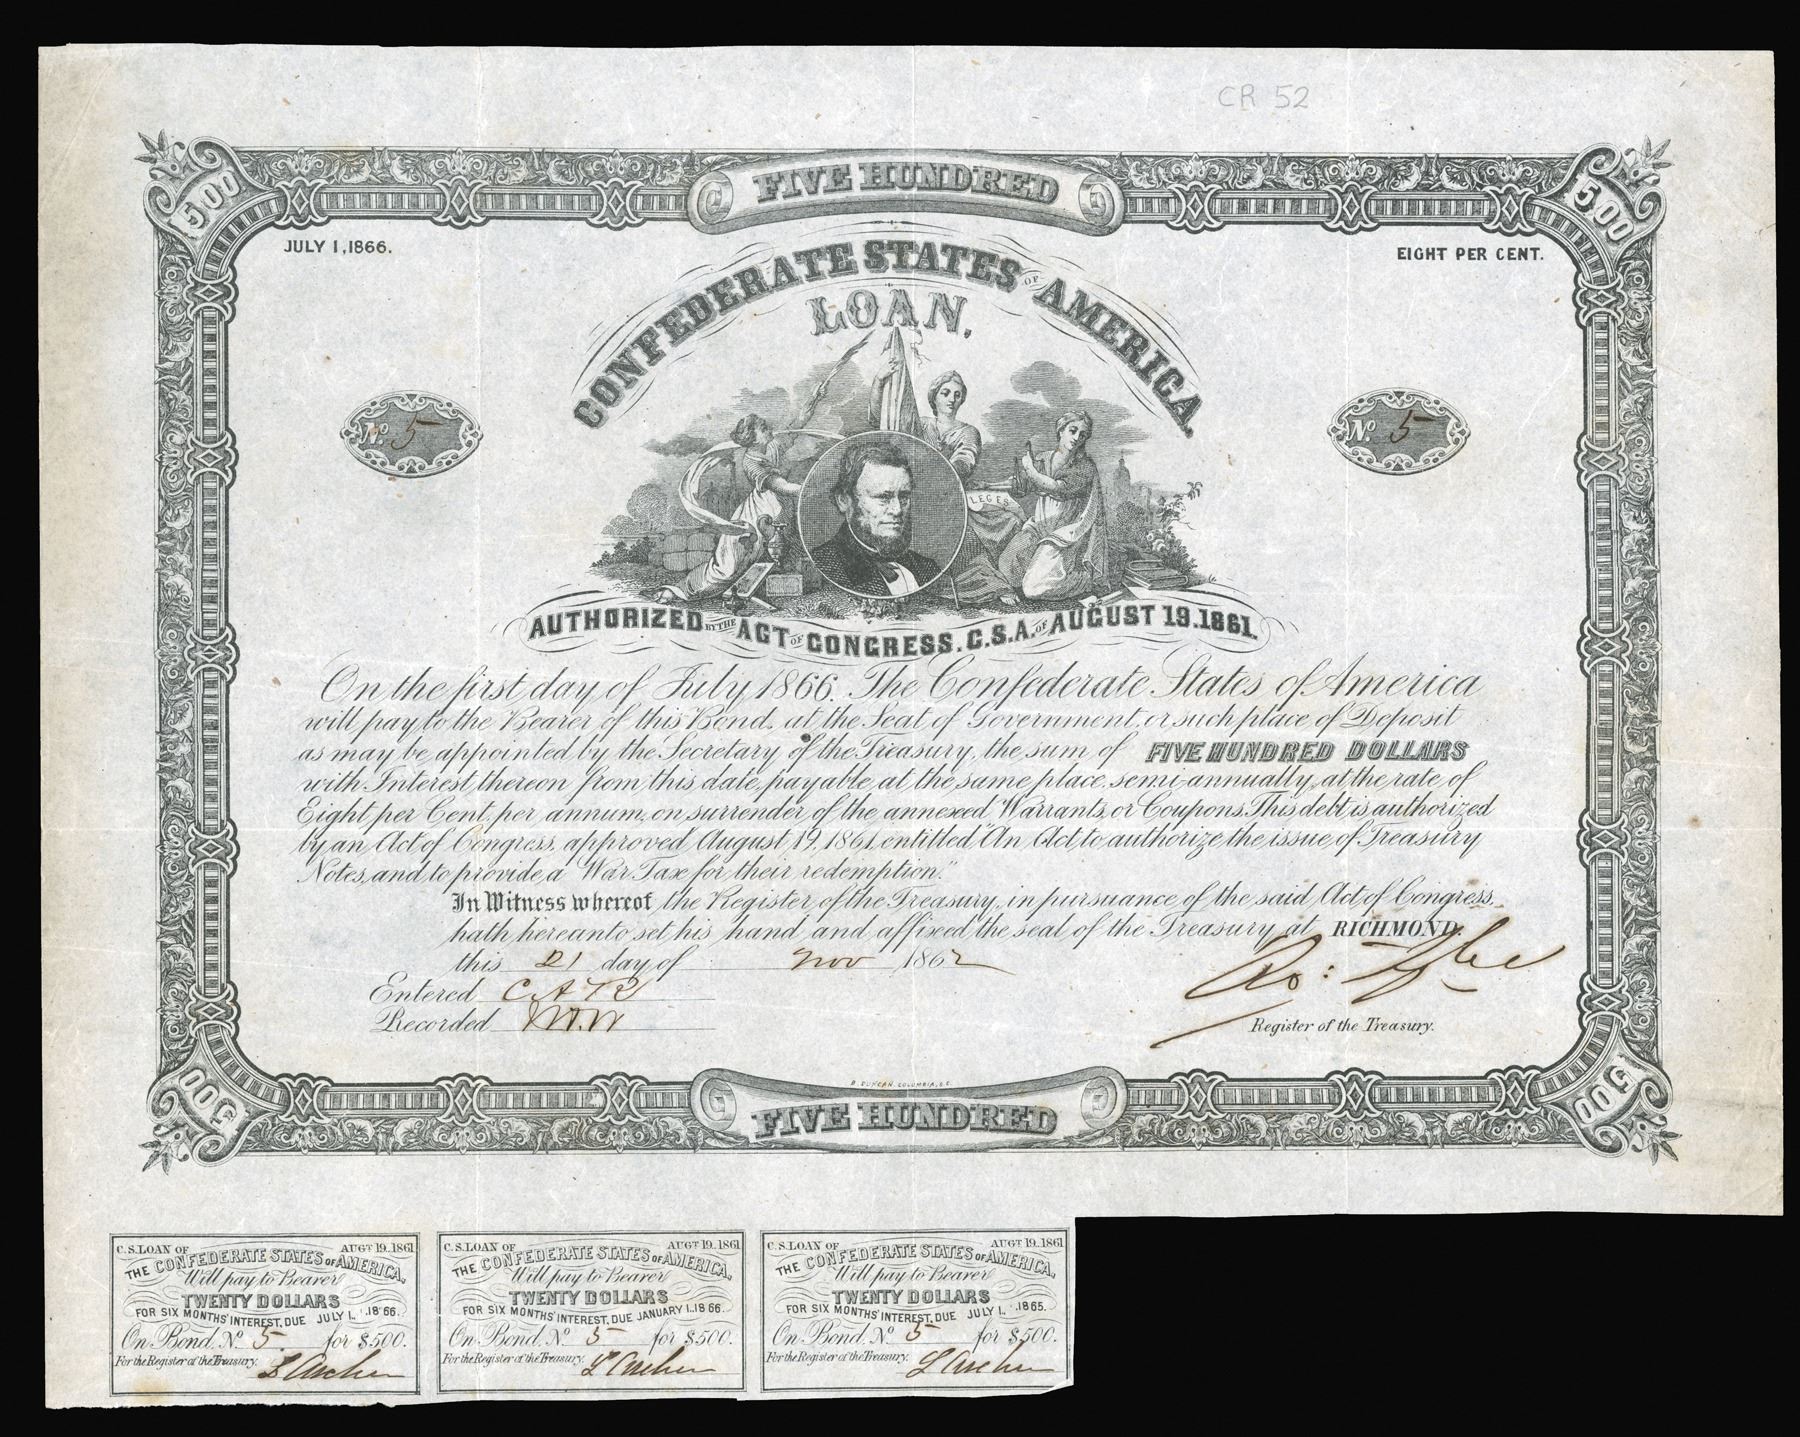 CR 52
FIVE HUNDRED
500
500
JULY 1, 1866.
EIGHT PER CENT.
CONFEDERATE STATES OF AMERICA
LOAN,
No. 5
No 5
LEGES
AUTHORIZED BY THE ACT OF CONGRESS. C.S.A. OF AUGUST 19.1861.
On the first day of July 1866. The Confederate States of America
will pay to the Bearer of this Bond, at the Seat of Government, or such place of Deposit
as may be appointed by the Secretary of the Treasury, the sum of FIVE HUNDRED DOLLARS
with Interest thereon from this date, payable at the same place, semi-annually, at the rate of
Eight per Cent. per annum, on surrender of the annexed Warrants, or Coupons. This debt is authorized
by an Act of Congress, approved August 19, 1861, entitled "An Act, to authorize the issue of Treasury
Notes, and to provide a War Tax for their redemption."
In Witness whereof, the Register of the Treasury, in pursuance of the said Act of Congress,
hath hereunto set his hand and affixed the seal of the Treasury at RICHMOND.
this 21 day of Nov 1862
Entered
Recorded
Ro: Tyler
Register of the Treasury.
500
500
B. DUNCAN, COLUMBIA, S.C.
FIVE HUNDRED
C.S. LOAN OF AUGT 19. 1861
THE CONFEDERATE STATES OF AMERICA,
Will pay to Bearer
TWENTY DOLLARS
FOR SIX MONTHS' INTEREST, DUE JULY 1., 1866.
On Bond, No 5 for $500.
For the Register of the Treasury. L Archer
C.S. LOAN OF AUGT 19. 1861
THE CONFEDERATE STATES OF AMERICA,
Will pay to Bearer
TWENTY DOLLARS
FOR SIX MONTHS' INTEREST, DUE JANUARY 1., 1866.
On Bond, No 5 for $500.
For the Register of the Treasury. L Archer
C.S. LOAN OF AUGT 19. 1861
THE CONFEDERATE STATES OF AMERICA,
Will pay to Bearer
TWENTY DOLLARS
FOR SIX MONTHS' INTEREST, DUE JULY 1., 1865.
On Bond, No 5 for $500.
For the Register of the Treasury. L Archer